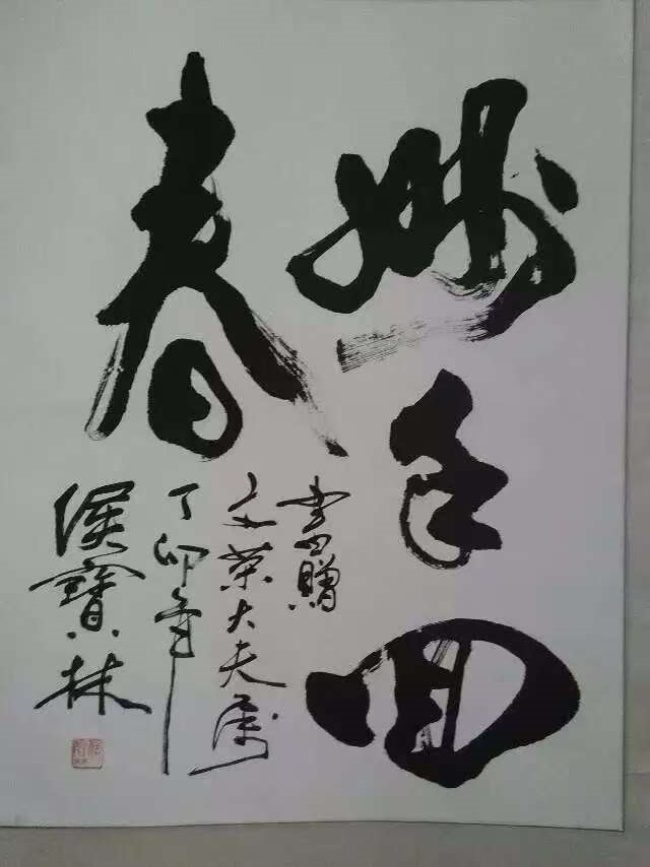 妙手回
春
書贈
文荣大夫属
丁卯年
侯寶林